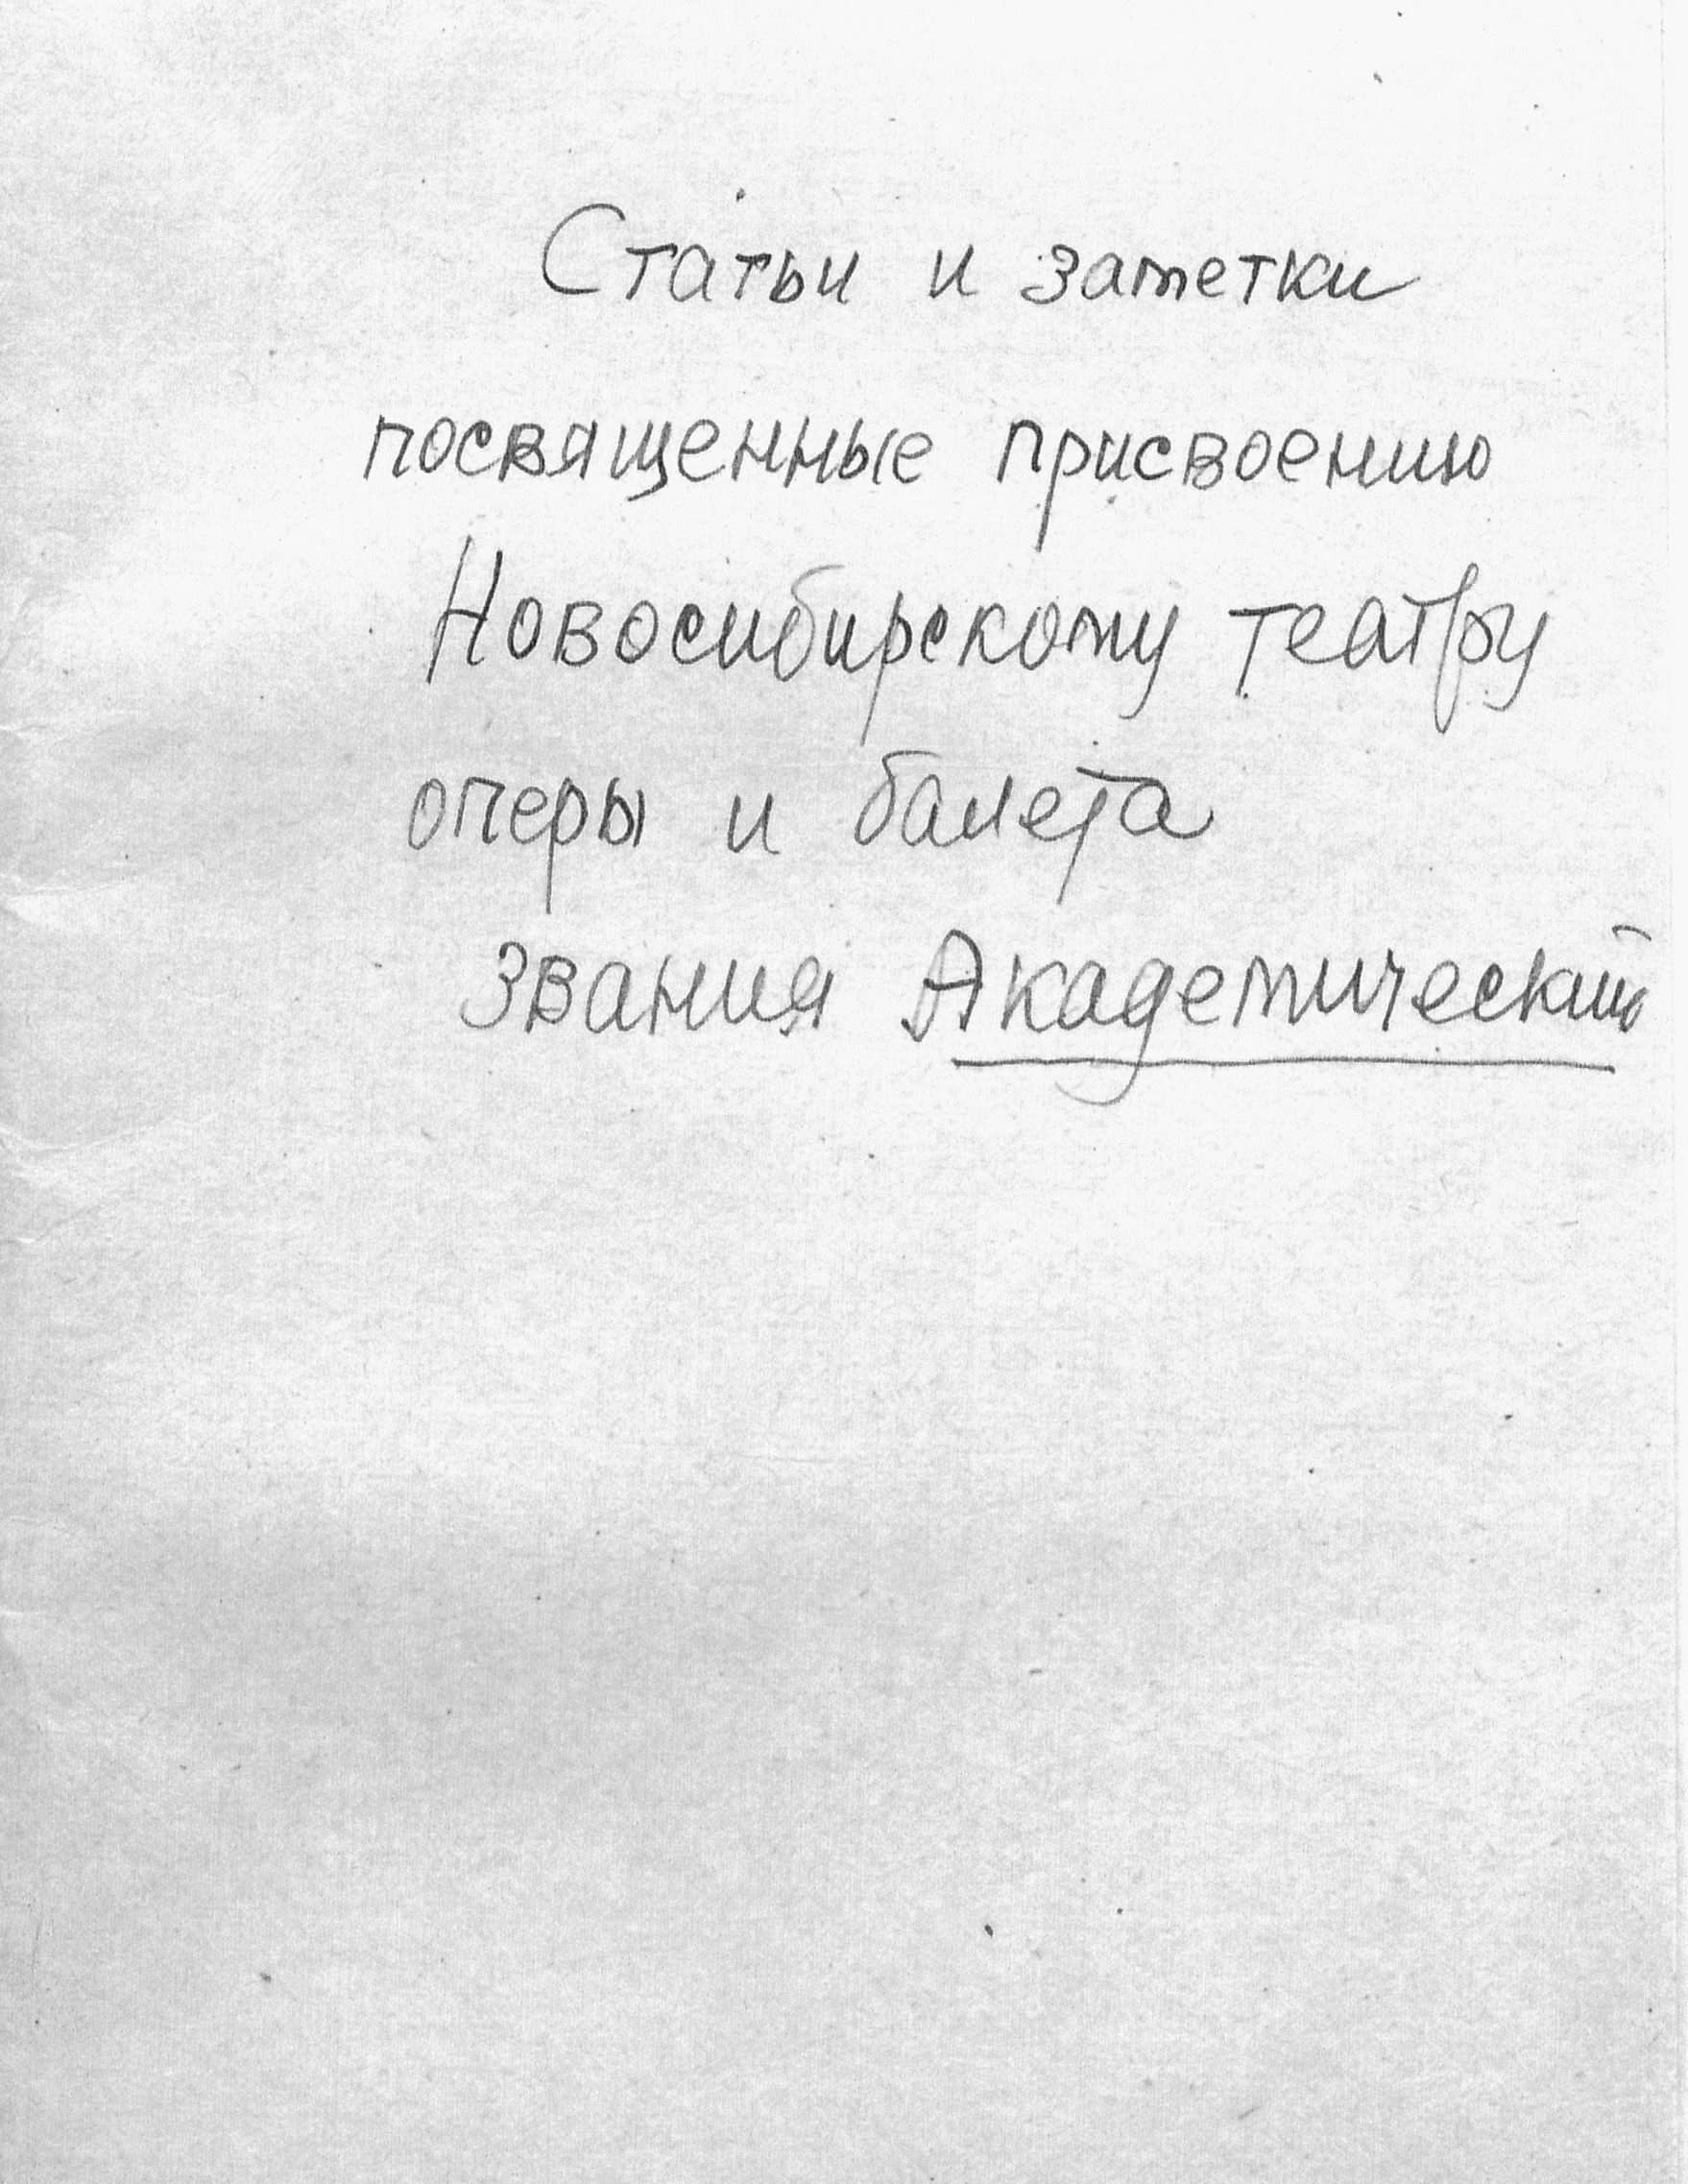 Статьи и заметки
посвященные присвоению
Новосибирскому театру
оперы и балета
звания Академический